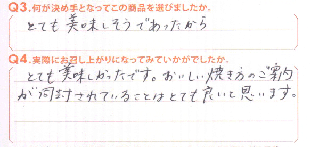 Q3.何が決め手となってこの商品を選びましたか.
とても美味しそうであったから
Q4.実際にお召し上がりになってみていかがでしたか.
とても美味しかったです。おいしい焼き方のご案内
が同封されていることはとても良いと思います。